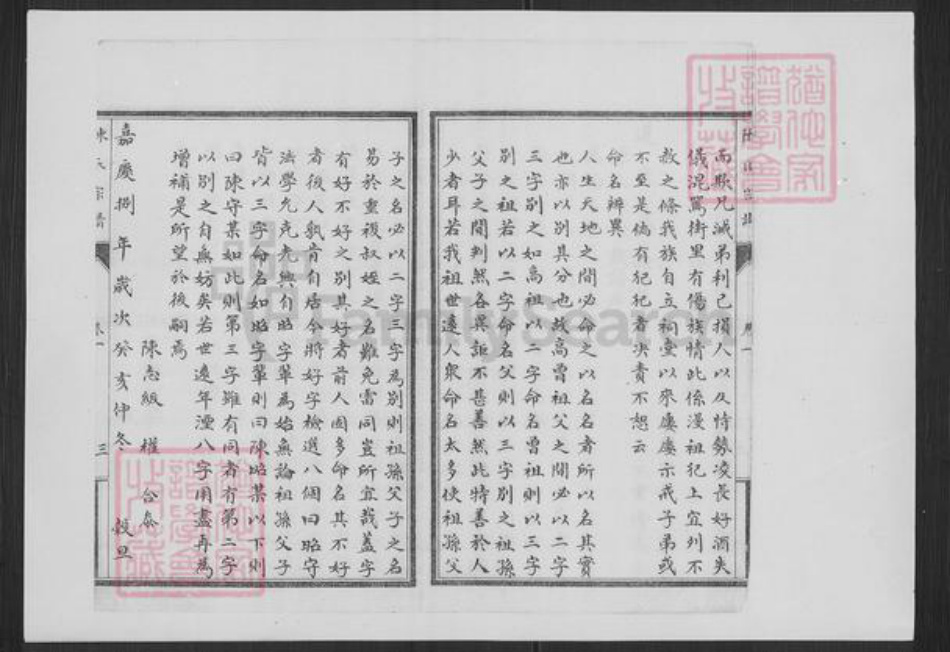 而欺凡滅弟利己損人以及恃勢凌長好酒失
儀混罵街里有傷族情此係漫祖犯上宜列不
赦之條我族自立祠堂以來屢屢示戒子弟或
不至是倘有犯犯者決責不恕云
命名辨異
人生天地之間必命之以名名者所以名其實
也亦以別其分也故高曾祖父之間必以二字
三字別之如高祖以二字命名曾祖則以三字
別之祖若以二字命名父則以三字別之祖孫
父子之間判然各異詎不甚善然此特善於人
少者耳若我祖世遠人眾命名太多使祖孫父
子之名必以二字三字為別則祖孫父子之名
易於重複叔姪之名難免雷同豈所宜哉蓋字
有好不好之別其好者前人固多命名其不好
者後人孰肯自居今將好字檢選八個曰昭守
法學允克光興自昭字輩為始無論祖孫父子
皆以三字命名如昭字輩則曰陳昭某以下則
曰陳守某如此則第三字雖有同者有第二字
以別之自無妨矣若世遠年湮八字用盡再為
增補是所望於後嗣焉
陳志級 權 仝叅
嘉慶捌年歲次癸亥仲冬 穀旦
陳氏宗譜 卷一 三